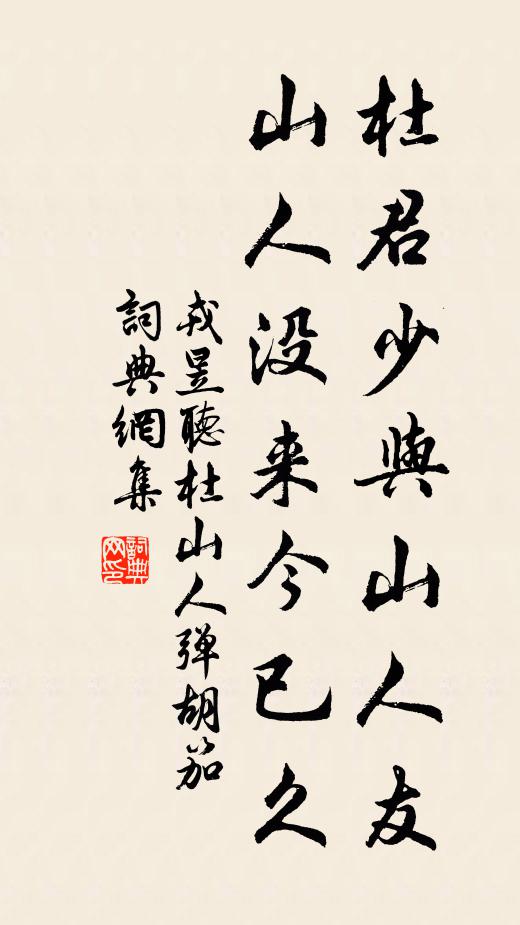 杜君少與山人友
山人没来今已久
戎昱聽杜山人弹胡笳
詞典網集
詞典网印